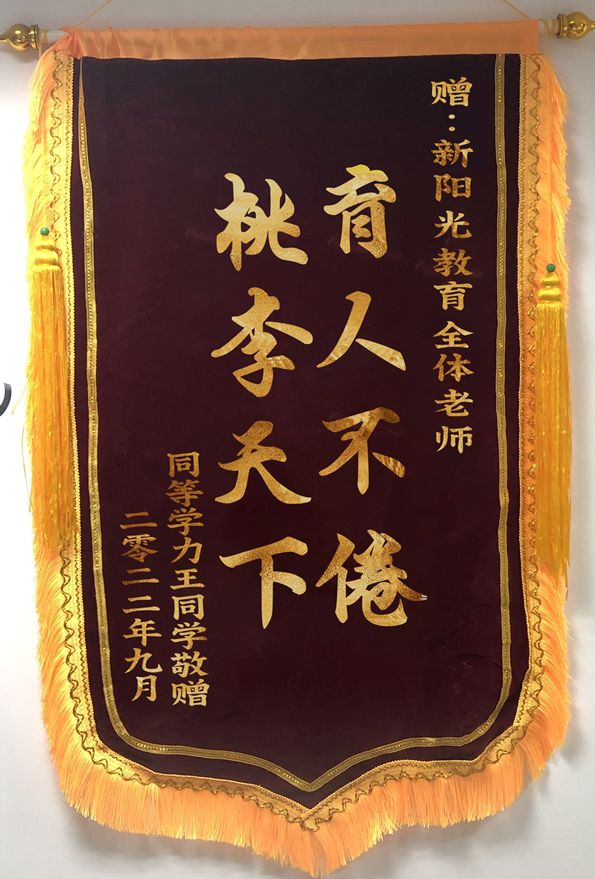 赠：新阳光教育全体老师
育人不倦
桃李天下
同等学力王同学敬赠
二零二二年九月